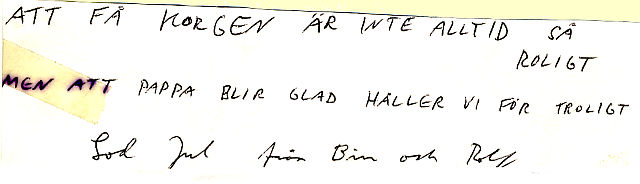 ATT FÅ KORGEN ÄR INTE ALLTID SÅ
ROLIGT
MEN ATT PAPPA BLIR GLAD HÅLLER VI FÖR TROLIGT
God Jul från Bim och Rolf